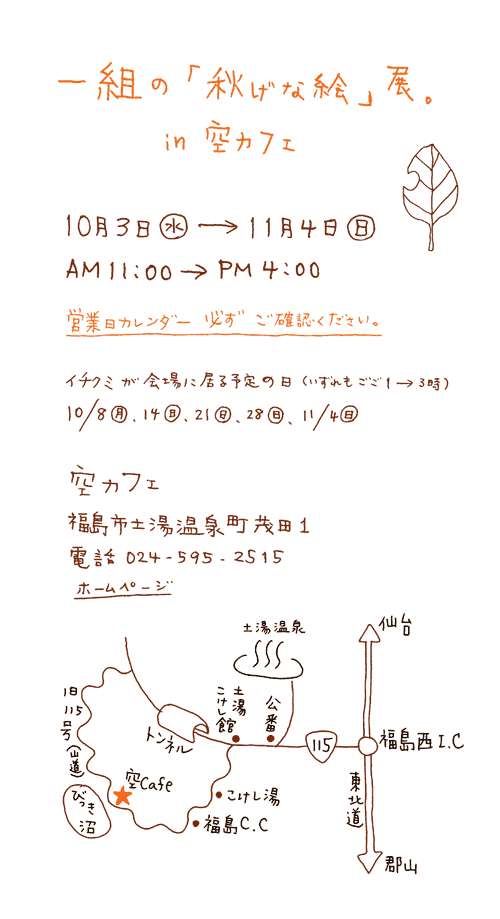 一組の「秋げな絵」展。
in 空カフェ
10月3日㊌→11月4日㊐
AM11:00→PM4:00
営業日カレンダー 必ず ご確認ください。
イチクミが会場に居る予定の日（いずれもごご1→3時）
10/8㊊、14㊐、21㊐、28㊐、11/4㊐
空カフェ
福島市土湯温泉町茂田1
電話 024-595-2515
ホームページ
仙台
土湯温泉
旧115号（山道）
土湯こけし館
公番
トンネル
115
福島西I.C
空Cafe
東北道
こけし湯
びっき沼
福島C.C
郡山